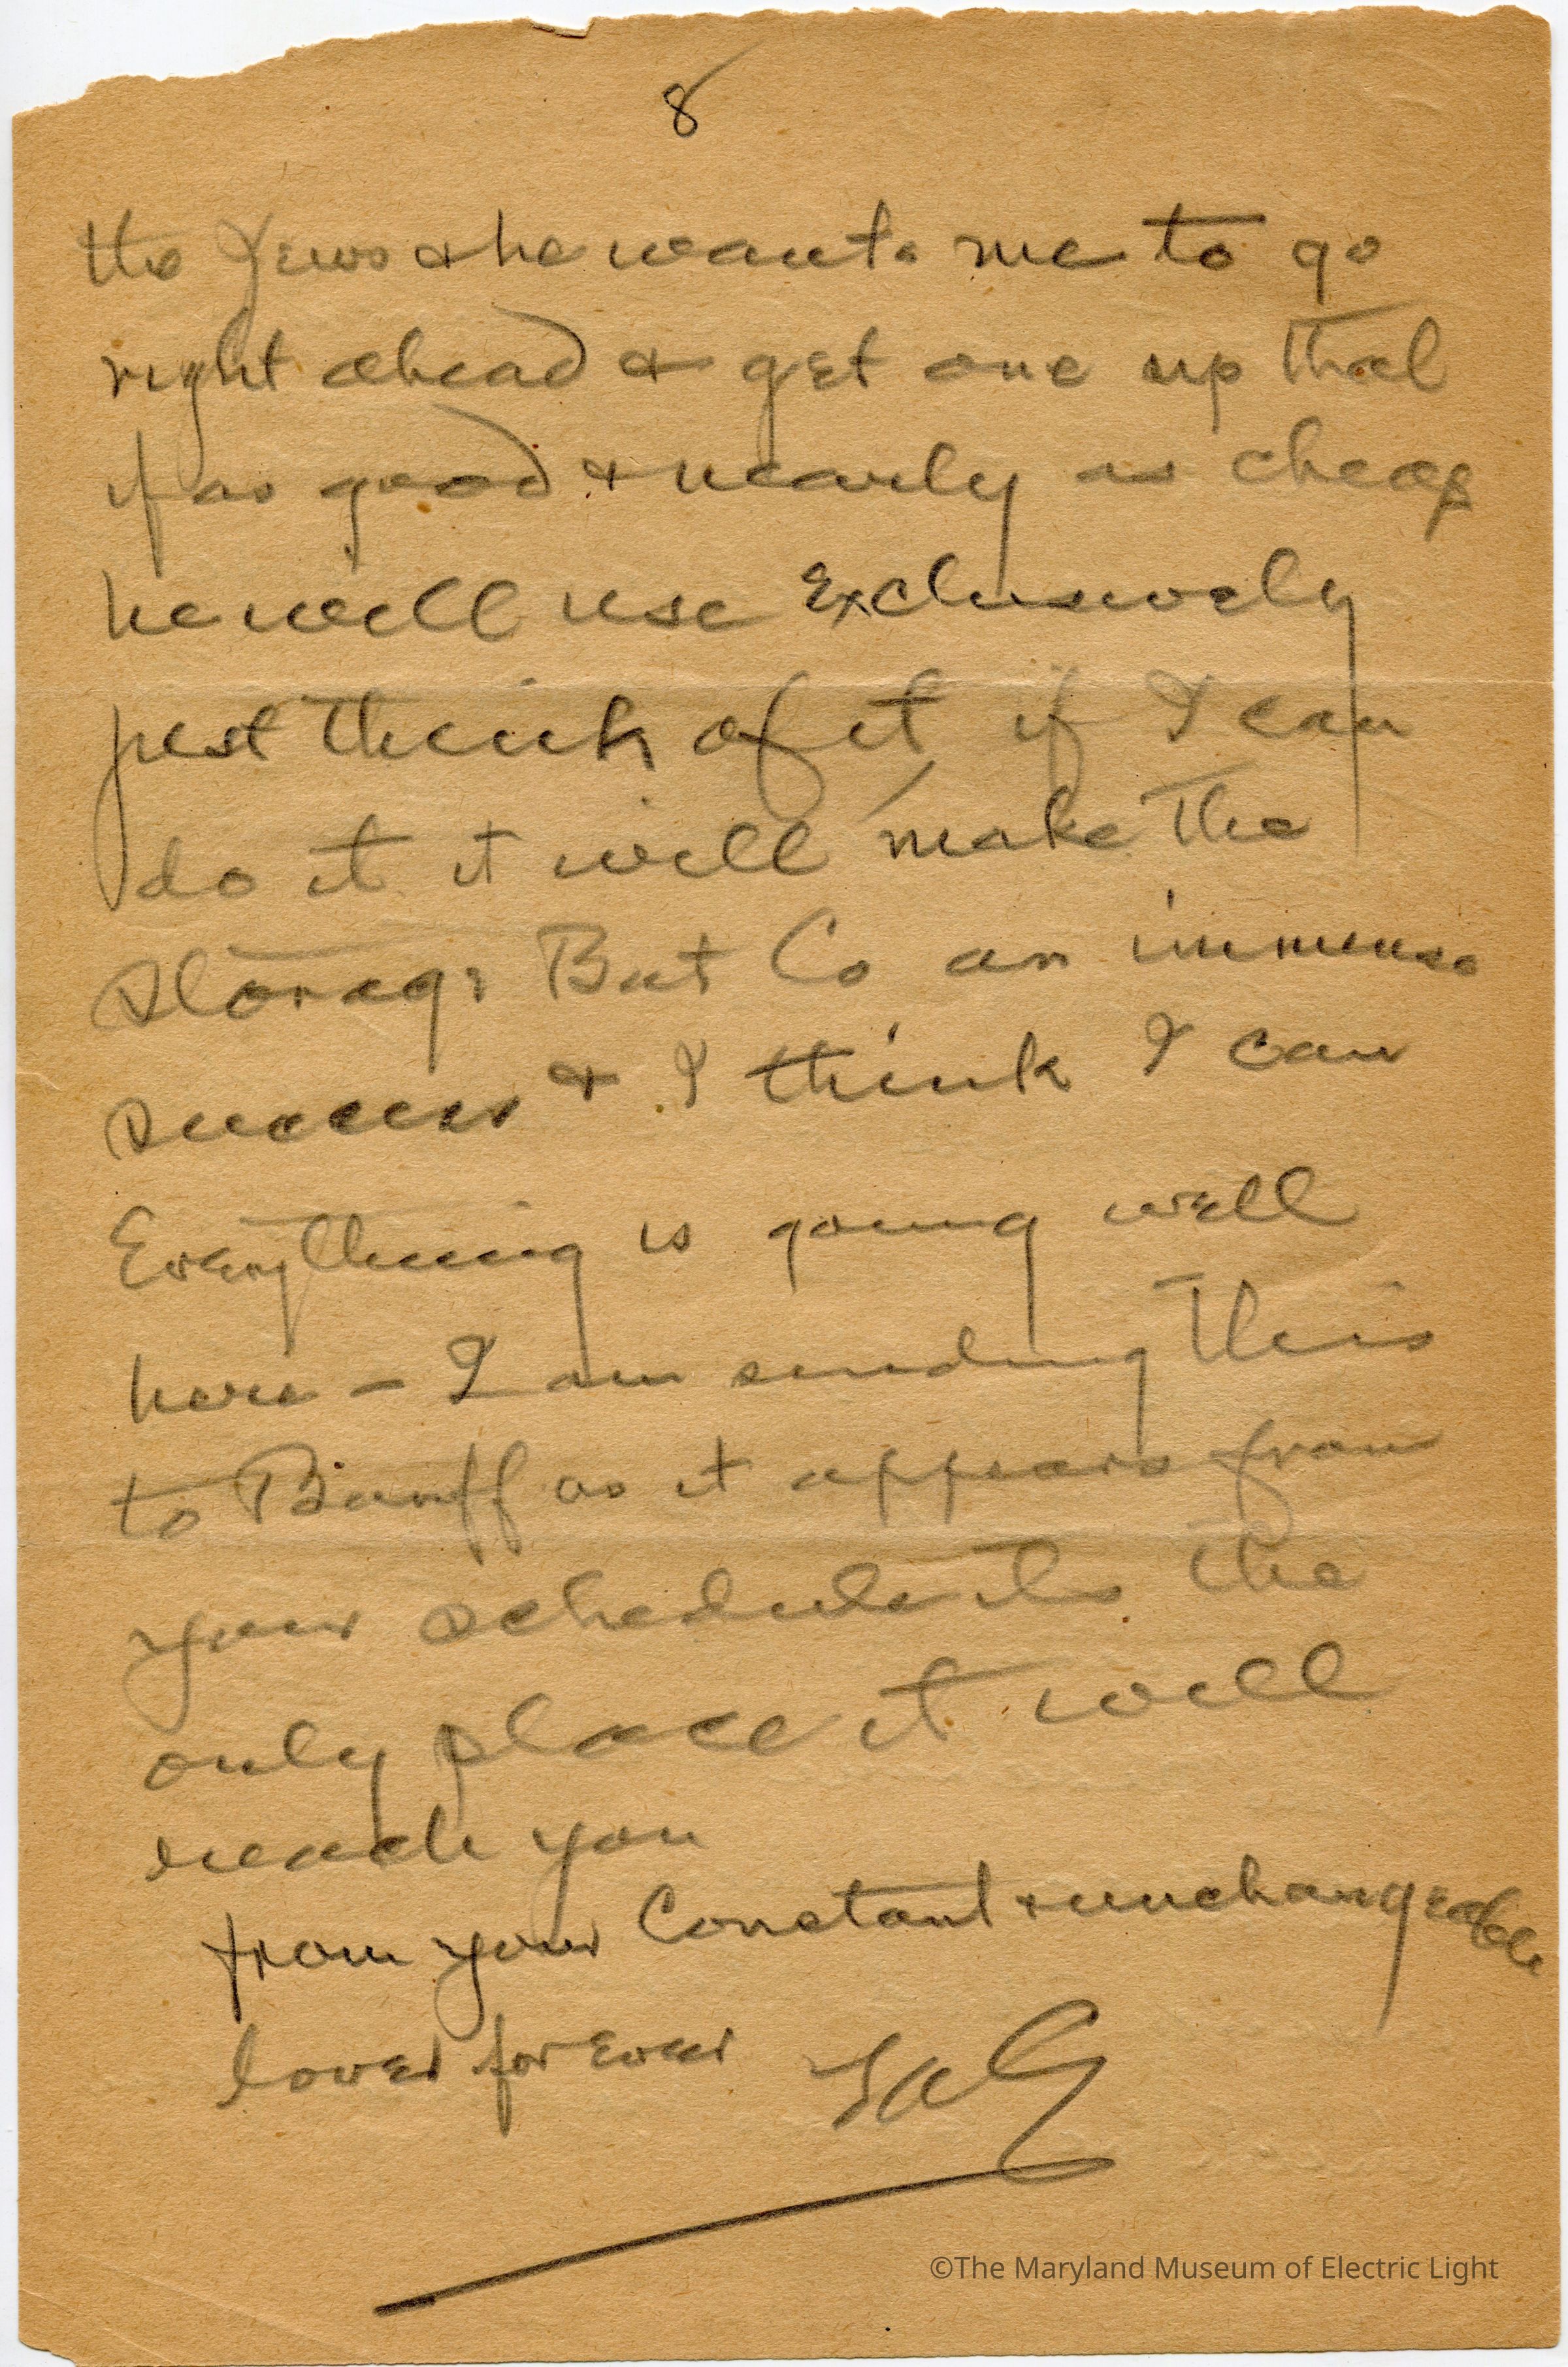 8
the Jews & he wants me to go
right ahead & get one up that
if as good & nearly as cheap
he will use Exclusively
just think of it if I can
do it it will make the
Storage Bat Co an immense
success & I think I can
Everything is going well
here - I am sending this
to Banff as it appears from
your schedule its the
only place it will
reach you
from your Constant & unchangeable
lover for Ever TAE
©The Maryland Museum of Electric Light